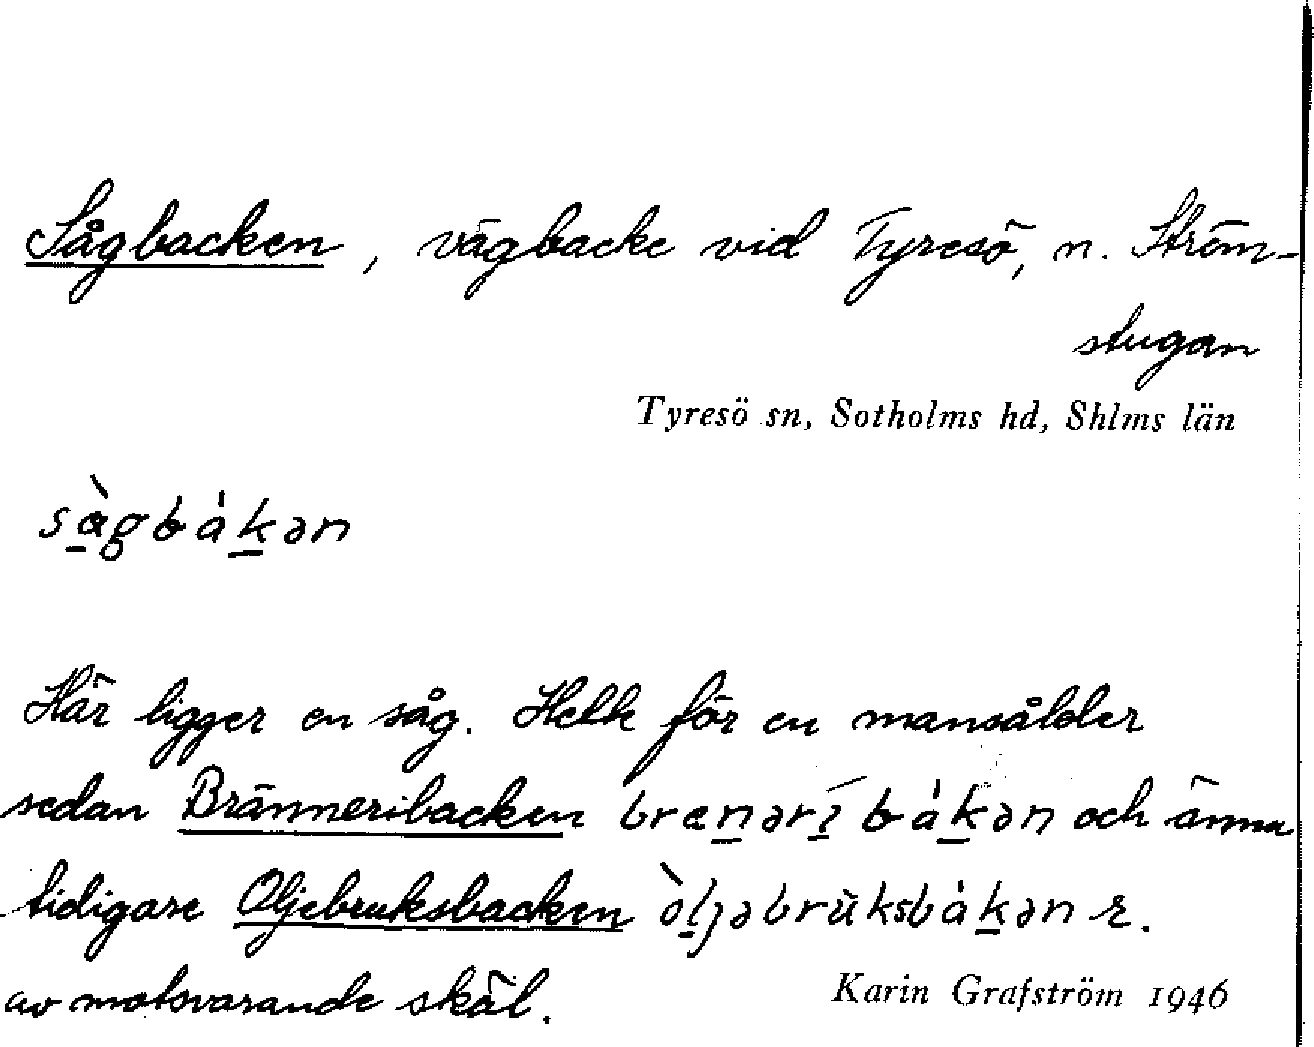 Sågbacken, vägbacke vid Tyresö, n. Ström-
stugan
Tyresö sn, Sotholms hd, Shlms län
sàgbákən
Här ligger en såg. Hette för en mansålder
sedan Brännеribacken brænərí bákən och ännu
tidigare Oljebruksbacken òljəbrùksbákən
av motsvarande skäl.
Karin Grafström 1946